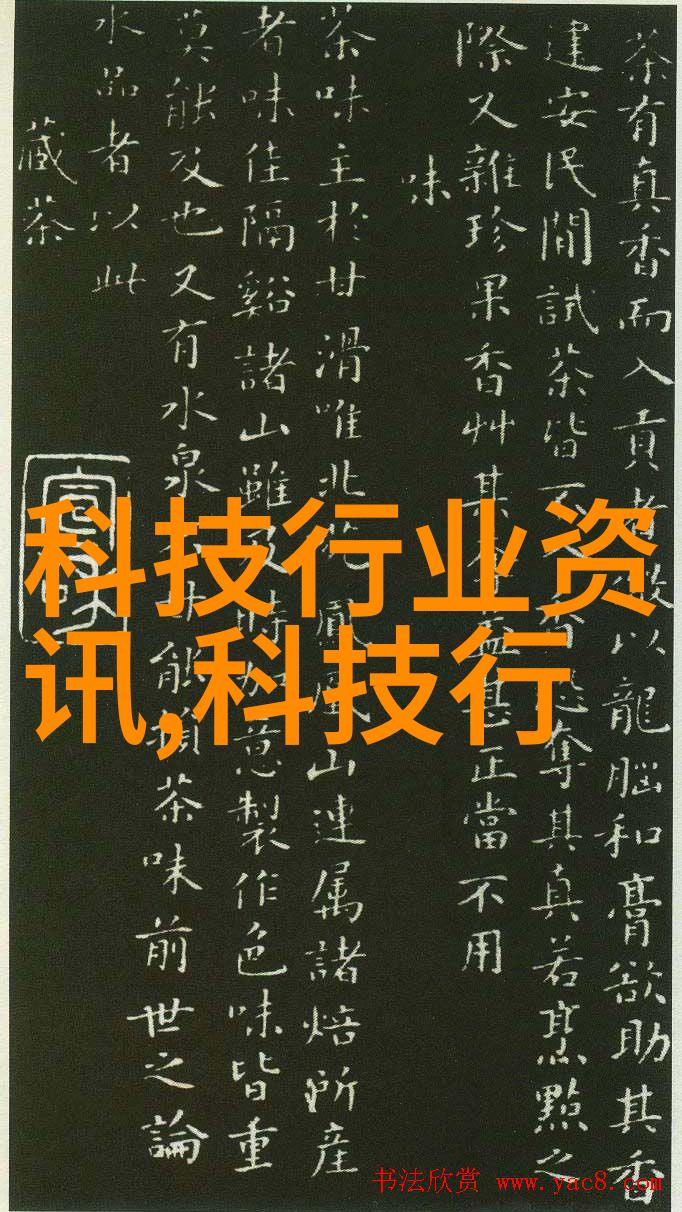 茶有真香而入貢者微以龍腦和膏欲助其香
建安民間試茶皆不入香恐奪其真若烹點之
際又雜珍果香艸其奪益甚正當不用
味
茶味主於甘滑唯北苑鳳凰山連属諸焙所産
者味佳隔谿諸山雖及時加意製作色味皆重
莫能及也又有水泉不甘能損茶味前世之論
水品者以此
藏茶
科技行业资
讯,科技行
书法欣赏 www.yac8.com